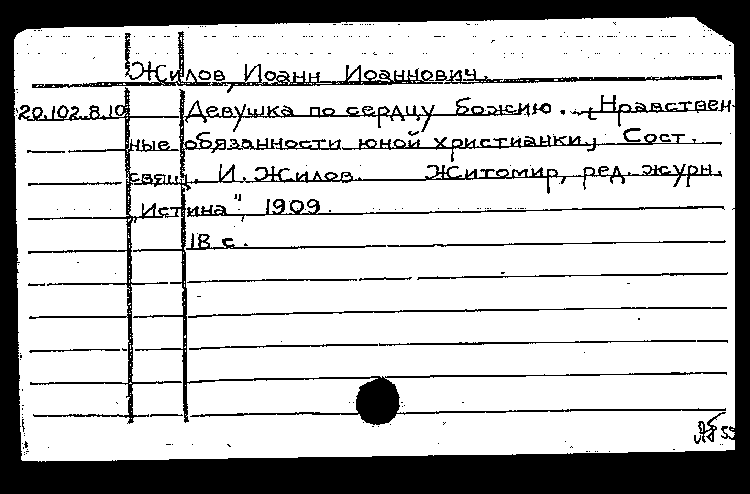 Жилов, Иоанн Иоаннович.
20.102.8.10 Девушка по сердцу божию. [Нравствен-
ные обязанности юной христианки] Сост.
свящ. И. Жилов. Житомир, ред. журн.
„Истина", 1909.
18 с.